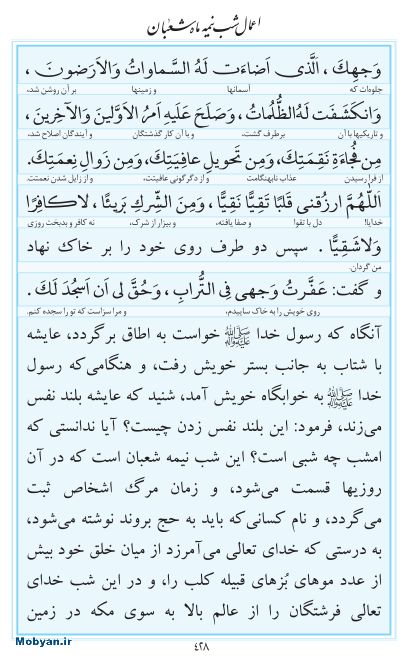 اعمال شب نیمه ماه شعبان
وَجهِكَ ، الَّذى اَضاءَت لَهُ السَّماواتُ وَالاَرَضونَ ،
جلوه‌ات که آسمانها و زمینها بر آن روشن شد،
وَانكَشَفَت لَهُ الظُّلُماتُ ، وَصَلَحَ عَلَيهِ اَمرُ الاَوَّلينَ وَالآخِرينَ ،
و تاریکیها با آن برطرف گشت، و با آن کار گذشتگان و آیندگان اصلاح شد،
مِن فُجاءَةِ نَقِمَتِكَ، وَمِن تَحويلِ عافِيَتِكَ، وَمِن زَوالِ نِعمَتِكَ.
از فرا رسیدن عذاب نابهنگامت و از دگرگونی عافیتت، و از زایل شدن نعمتت.
اَللّٰهُمَّ ارزُقنى قَلبًا تَقِيًّا نَقِيًّا ، وَمِنَ الشِّركِ بَريـًٔا ، لاكافِرًا
خدایا! دل با تقوا و صفا یافته، و بیزار از شرک، نه کافر و بدبخت روزی
وَلاشَقِيًّا . سپس دو طرف روی خود را بر خاک نهاد
من گردان.
و گفت: عَفَّرتُ وَجهى فِى التُّرابِ ، وَحُقَّ لى اَن اَسجُدَ لَكَ .
روی خویش را به خاک ساییدم، و مرا سزاست که تو را سجده کنم.
آنگاه که رسول خدا ﷺ خواست به اطاق برگردد، عایشه
با شتاب به جانب بستر خویش رفت، و هنگامی‌که رسول
خدا ﷺ به خوابگاه خویش آمد، شنید که عایشه بلند نفس
می‌زند، فرمود: این بلند نفس زدن چیست؟ آیا ندانستی که
امشب چه شبی است؟ این شب نیمه شعبان است که در آن
روزیها قسمت می‌شود، و زمان مرگ اشخاص ثبت
می‌گردد، و نام کسانی‌که باید به حج بروند نوشته می‌شود،
به درستی که خدای تعالی می‌آمرزد از میان خلق خود بیش
از عدد موهای بُزهای قبیله کلب را، و در این شب خدای
تعالی فرشتگان را از عالم بالا به سوی مکه در زمین
Mobyan.ir
٤٢٨